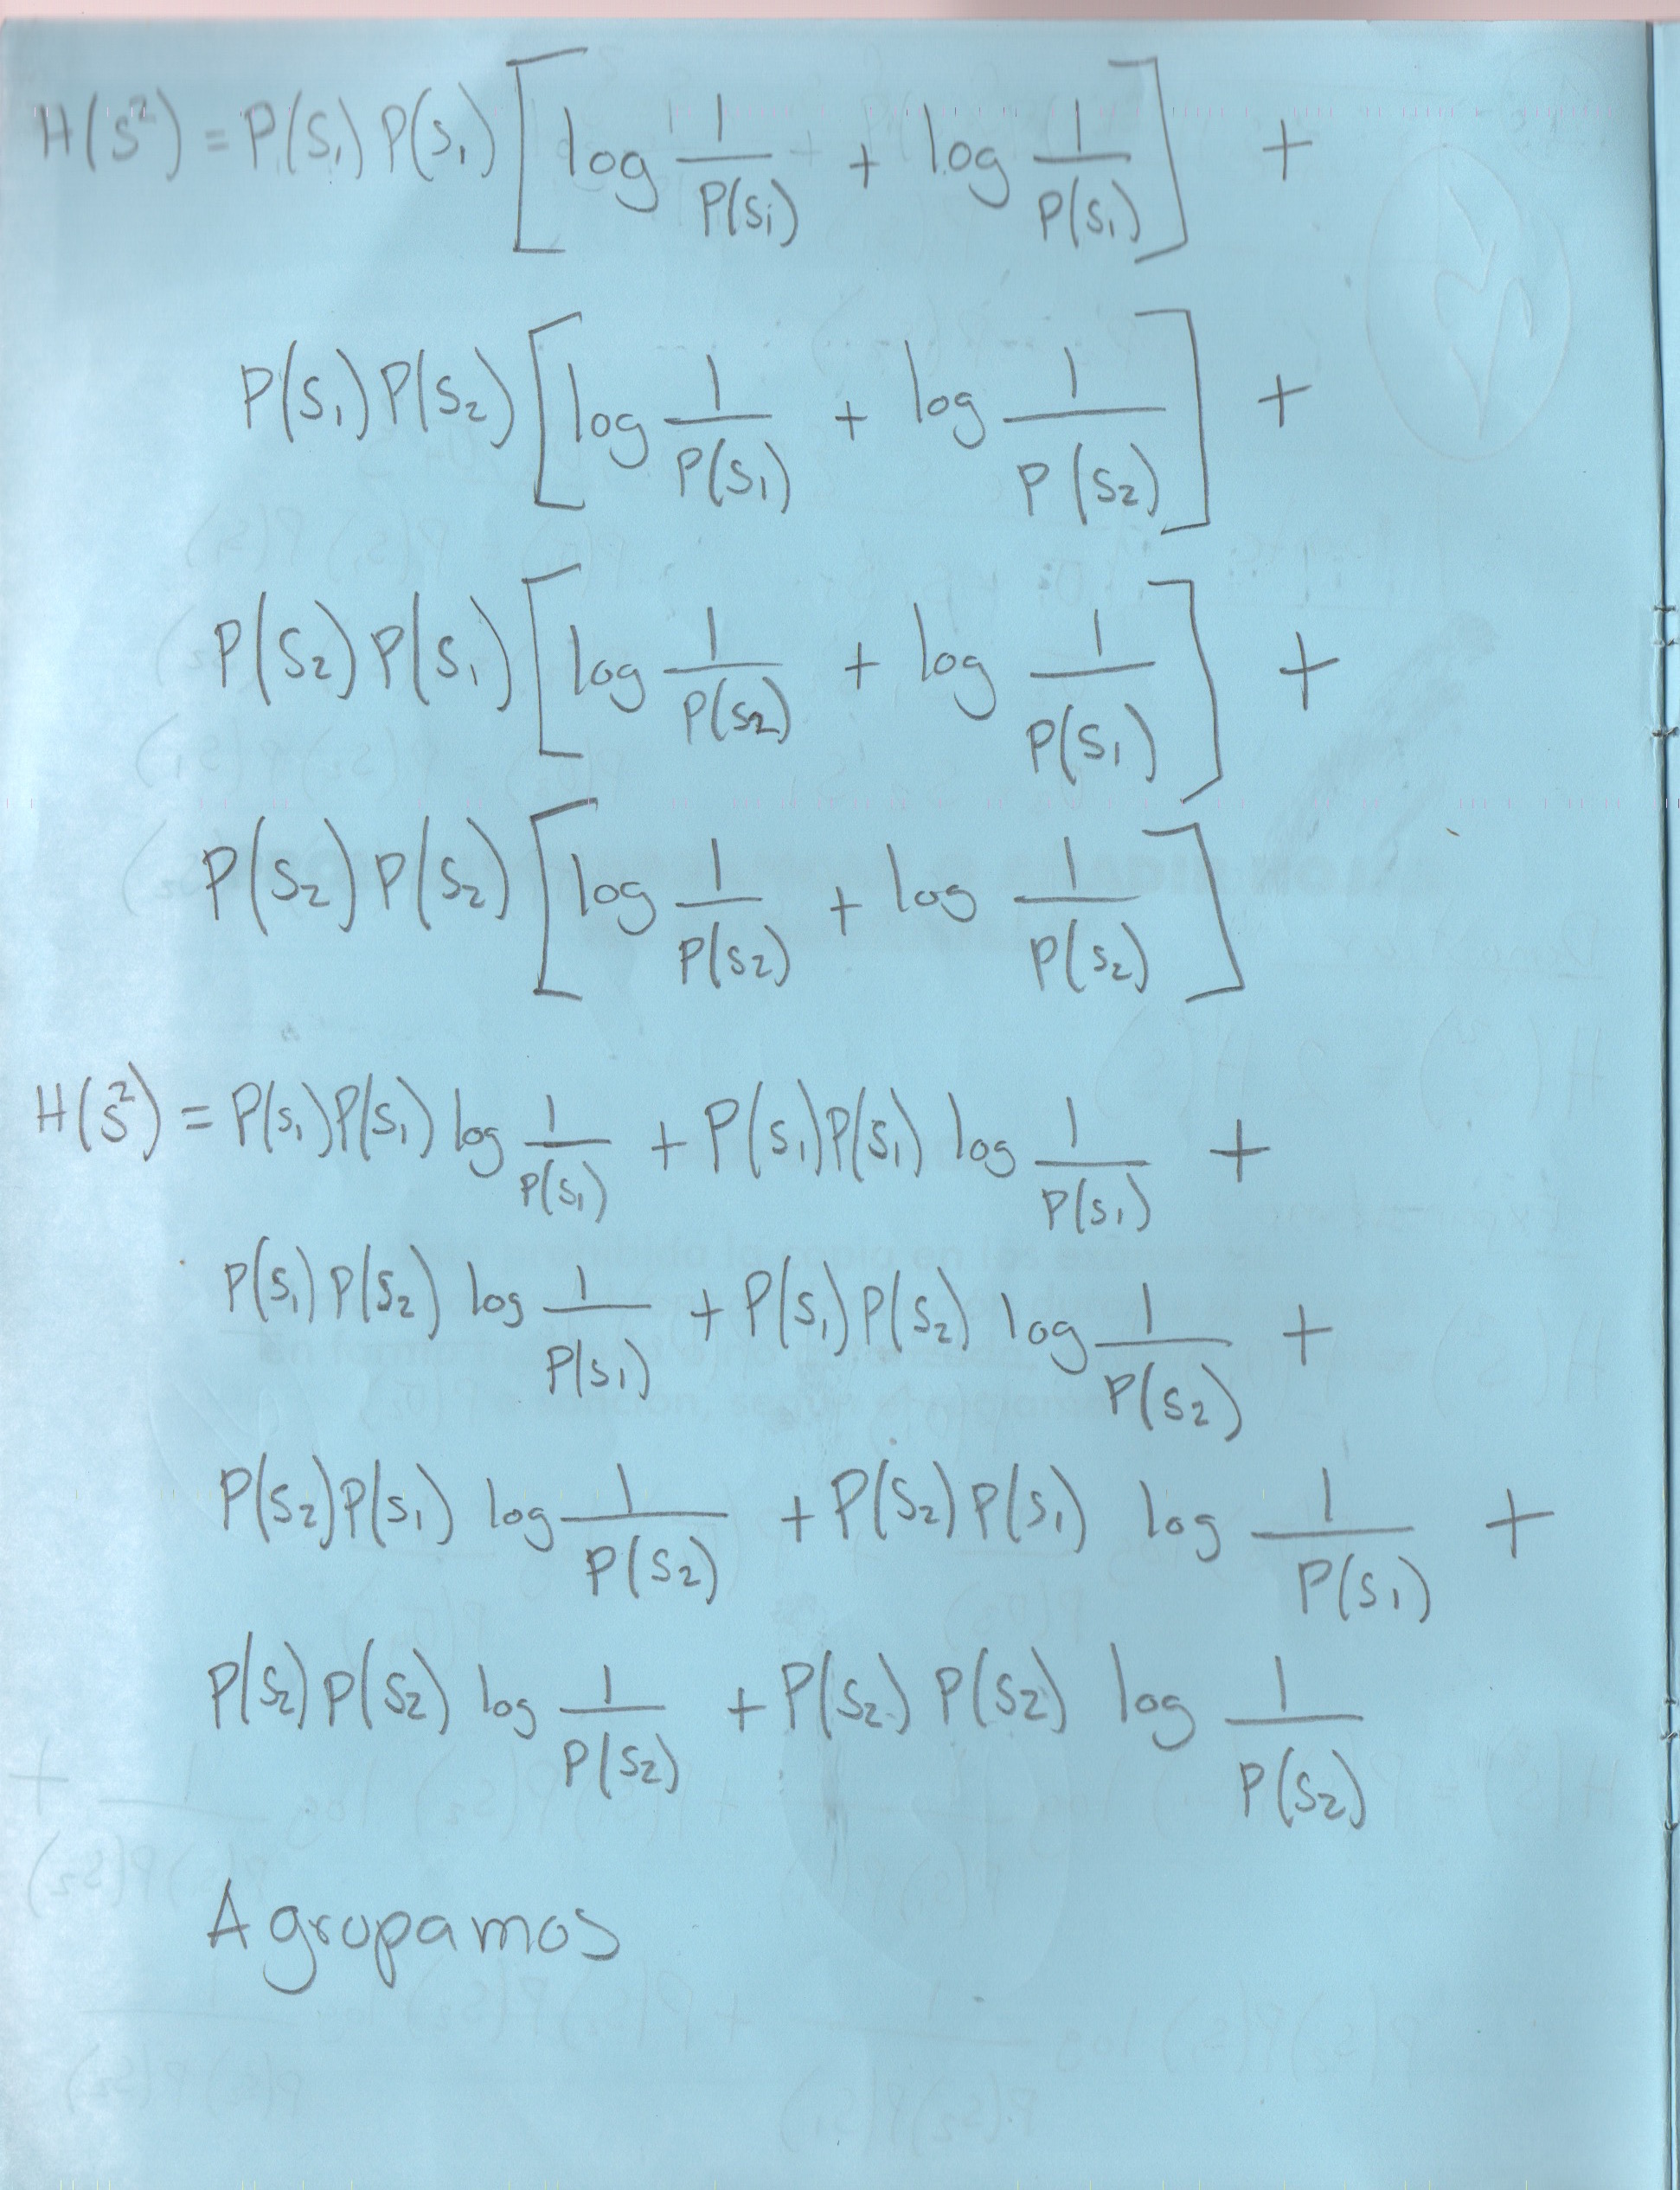 H(S²) = P(S₁) P(S₁) [ log 1/P(S₁) + log 1/P(S₁) ] +
P(S₁) P(S₂) [ log 1/P(S₁) + log 1/P(S₂) ] +
P(S₂) P(S₁) [ log 1/P(S₂) + log 1/P(S₁) ] +
P(S₂) P(S₂) [ log 1/P(S₂) + log 1/P(S₂) ]
H(S²) = P(S₁)P(S₁) log 1/P(S₁) + P(S₁)P(S₁) log 1/P(S₁) +
P(S₁) P(S₂) log 1/P(S₁) + P(S₁)P(S₂) log 1/P(S₂) +
P(S₂)P(S₁) log 1/P(S₂) + P(S₂)P(S₁) log 1/P(S₁) +
P(S₂)P(S₂) log 1/P(S₂) + P(S₂) P(S₂) log 1/P(S₂)
Agrupamos